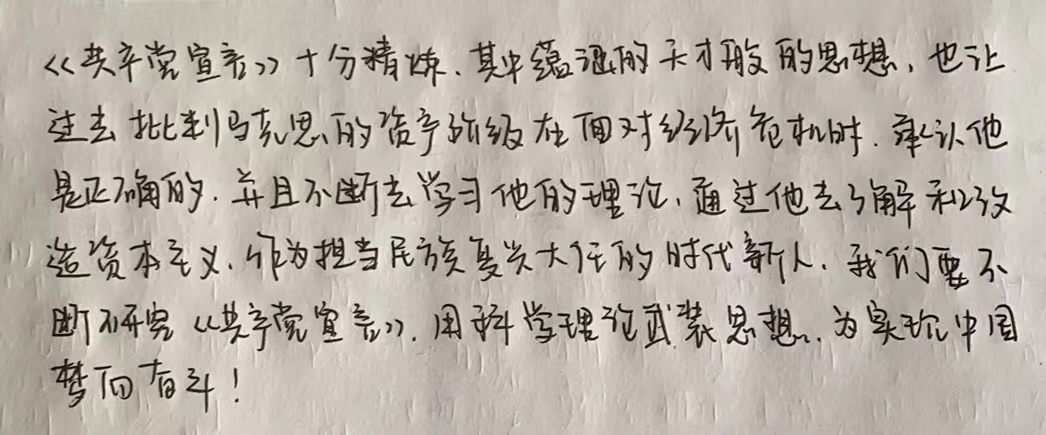 《共产党宣言》十分精炼，其中蕴涵的天才般的思想，也让
过去批判马克思的资产阶级在面对经济危机时，承认他
是正确的，并且不断去学习他的理论，通过他去了解和改
造资本主义，作为担当民族复兴大任的时代新人，我们要不
断研究《共产党宣言》，用科学理论武装思想，为实现中国
梦而奋斗！